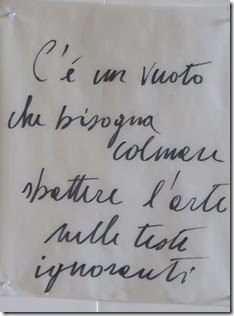 C'é un vuoto
che bisogna
colmare
sbattere l'arte
nelle teste
ignoranti